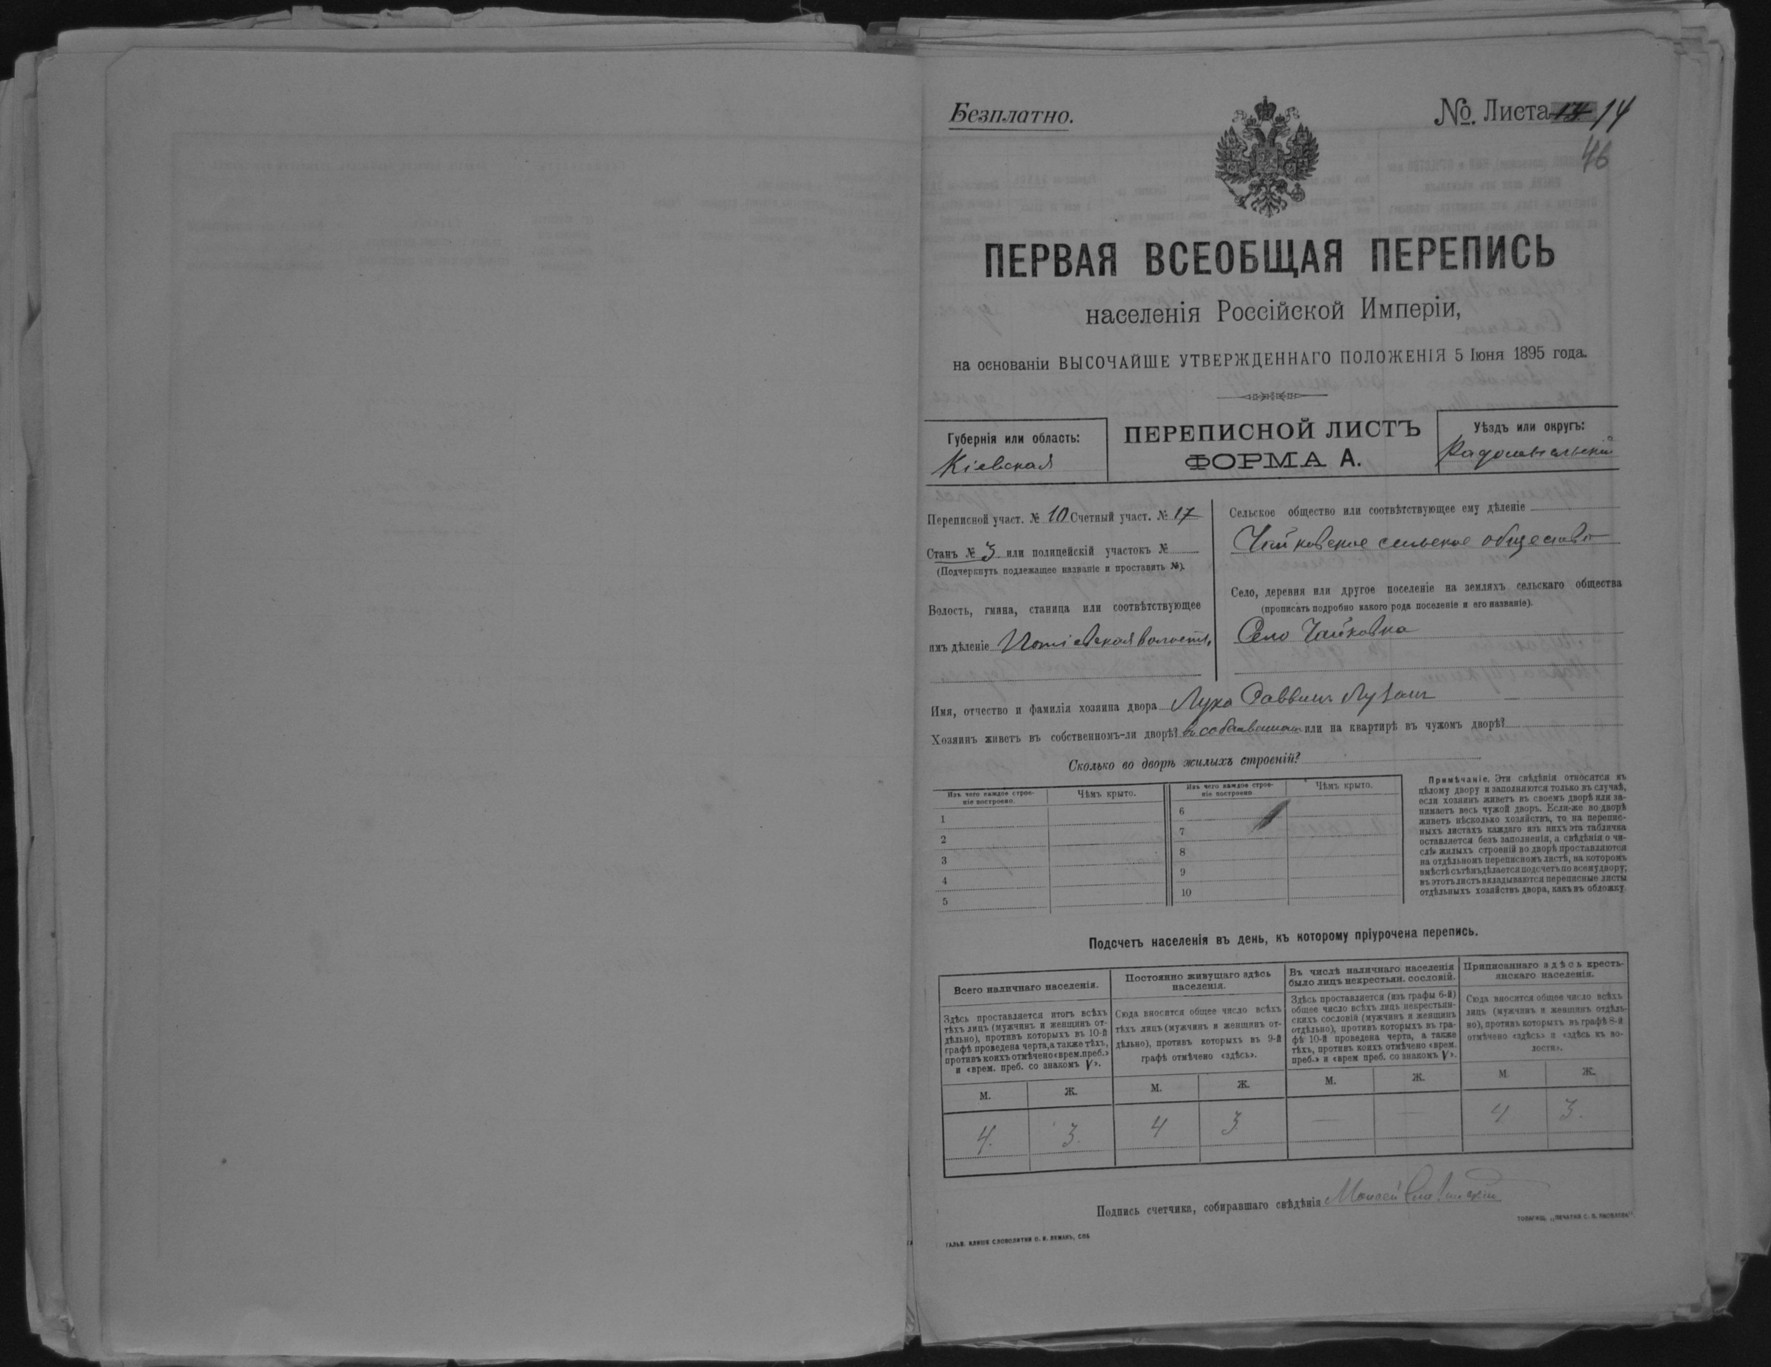 Безплатно.
№. Листа 14
46
ПЕРВАЯ ВСЕОБЩАЯ ПЕРЕПИСЬ
населенія Россійской Имперіи,
на основаніи ВЫСОЧАЙШЕ УТВЕРЖДЕННАГО ПОЛОЖЕНІЯ 5 Іюня 1895 года.
Губернія или область:
Кіевская
ПЕРЕПИСНОЙ ЛИСТЪ
ФОРМА А.
Уѣздъ или округъ:
Радомысльскій
Переписной участ. № 10 Счетный участ. № 17
Станъ № 3 или полицейскій участокъ №
(Подчеркнуть подлежащее названіе и проставить №).
Волость, гмина, станица или соотвѣтствующее
имъ дѣленіе Потіевская волость,
Сельское общество или соотвѣтствующее ему дѣленіе
Чайковское сельское общество
Село, деревня или другое поселеніе на земляхъ сельскаго общества
(прописать подробно какого рода поселеніе и его названіе).
Село Чайковка
Имя, отчество и фамилія хозяина двора Лука Саввинъ
Хозяинъ живетъ въ собственномъ-ли дворѣ? въ собственномъ или на квартирѣ въ чужомъ дворѣ?
Сколько во дворѣ жилыхъ строеній?
Изъ чего каждое строе-
ніе построено.
Чѣмъ крыто.
1
2
3
4
5
Изъ чего каждое строе-
ніе построено.
Чѣмъ крыто.
6
7
8
9
10
Примѣчаніе. Эти свѣдѣнія относятся къ
цѣлому двору и заполняются только въ случаѣ,
если хозяинъ живетъ въ своемъ дворѣ или за-
нимаетъ весь чужой дворъ. Если-же во дворѣ
живетъ нѣсколько хозяйствъ, то на перепис-
ныхъ листахъ каждаго изъ нихъ эта табличка
оставляется безъ заполненія, а свѣдѣнія о чи-
слѣ жилыхъ строеній во дворѣ проставляются
на отдѣльномъ переписномъ листѣ, на которомъ
вмѣстѣ съ тѣмъ дѣлается подсчетъ по всему двору;
въ этотъ листъ вкладываются переписные листы
отдѣльныхъ хозяйствъ двора, какъ въ обложку.
Подсчетъ населенія въ день, къ которому пріурочена перепись.
Всего наличнаго населенія.
Здѣсь проставляется итогъ всѣхъ
тѣхъ лицъ (мужчинъ и женщинъ от-
дѣльно), противъ которыхъ въ 10-й
графѣ проведена черта, а также тѣхъ,
противъ коихъ отмѣчено «врем. преб.»
и «врем. преб. со знакомъ V».
М. Ж.
4. 3.
Постоянно живущаго здѣсь
населенія.
Сюда вносится общее число всѣхъ
тѣхъ лицъ (мужчинъ и женщинъ от-
дѣльно), противъ которыхъ въ 9-й
графѣ отмѣчено «здѣсь».
М. Ж.
4 3
Въ числѣ наличнаго населенія
было лицъ некрестьян. сословій.
Здѣсь проставляется (изъ графы 6-й)
общее число всѣхъ лицъ некрестьян-
скихъ сословій (мужчинъ и женщинъ
отдѣльно), противъ которыхъ въ гра-
фѣ 10-й проведена черта, а также
тѣхъ, противъ коихъ отмѣчено «врем.
преб.» и «врем преб. со знакомъ V».
М. Ж.
— —
Приписаннаго здѣсь кресть-
янскаго населенія.
Сюда вносится общее число всѣхъ
лицъ (мужчинъ и женщинъ отдѣль-
но), противъ которыхъ въ графѣ 8-й
отмѣчено «здѣсь» и «здѣсь къ во-
лости».
М. Ж.
4 3.
Подпись счетчика, собиравшаго свѣдѣнія Моисей
ГАЛЬВ. КЛИШЕ СЛОВОЛИТНИ О. И. ЛЕМАНЪ, СПБ
ТОВАРИЩ. „ПЕЧАТНЯ С. П. ЯКОВЛЕВА".